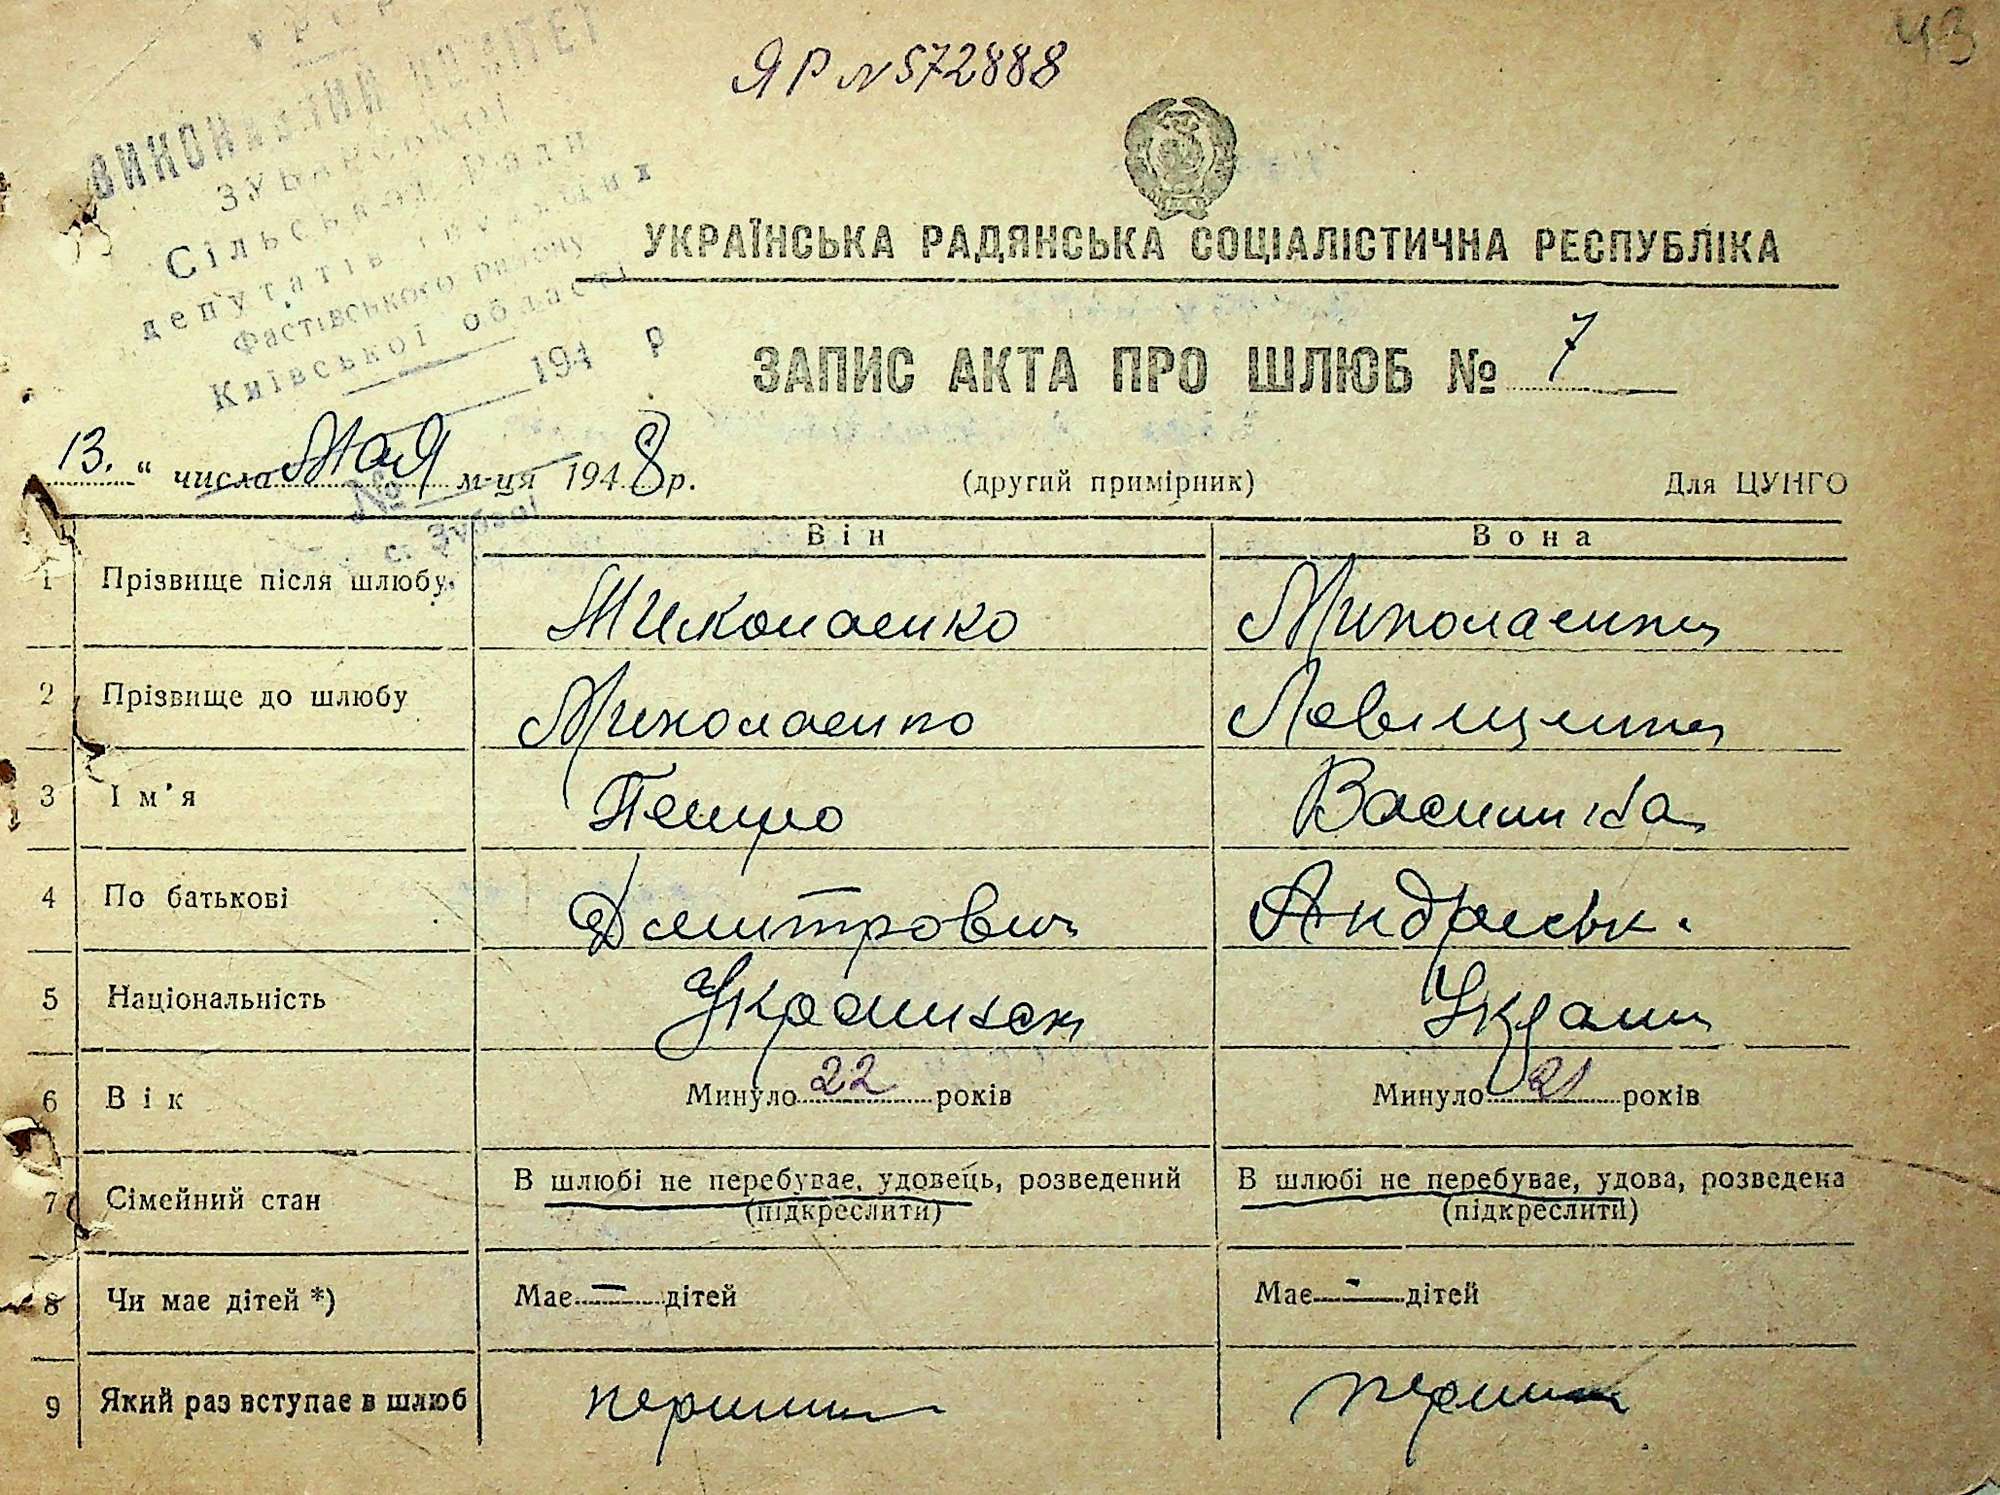 43
ЯР N 572888
УРСР
ВИКОНАВЧИЙ КОМІТЕТ
ЗУБАНСЬКОЇ
Сільської Ради
депутатів трудящих
Фастівського району
Київської області
194 р
№
УКРАЇНСЬКА РАДЯНСЬКА СОЦІАЛІСТИЧНА РЕСПУБЛІКА
ЗАПИС АКТА ПРО ШЛЮБ № 7
13. “ числа Мая м-ця 1948 р.
(другий примірник)
Для ЦУНГО
Він
Вона
1 Прізвище після шлюбу Миколаенко Миколаенко
2 Прізвище до шлюбу Миколаенко
3 Ім'я Петро Василиса
4 По батькові Дмитрович Андреевн.
5 Національність Украинск Украин
6 Вік Минуло 22 років Минуло 21 років
7 Сімейний стан В шлюбі не перебуває, удовець, розведений В шлюбі не перебуває, удова, розведена
(підкреслити) (підкреслити)
8 Чи має дітей *) Має — дітей Має - дітей
9 Який раз вступає в шлюб первый первый